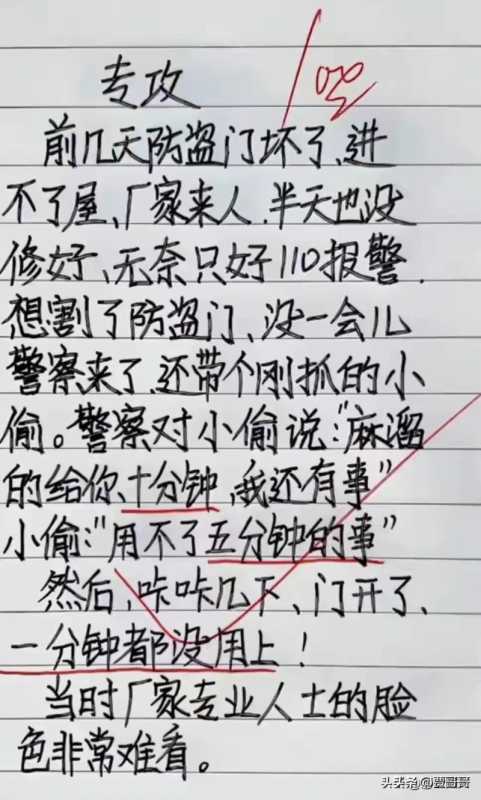 专攻
前几天防盗门坏了、进
不了屋、厂家来人.半天也没
修好、无奈只好110报警.
想割了防盗门、没一会儿
警察来了.还带个刚抓的小
偷。警察对小偷说:"麻溜
的给你、十分钟,我还有事"
小偷:"用不了五分钟的事"
然后,咔咔几下、门开了、
一分钟都没用上!
当时厂家专业人士的脸
色非常难看。
头条号@贾哥哥